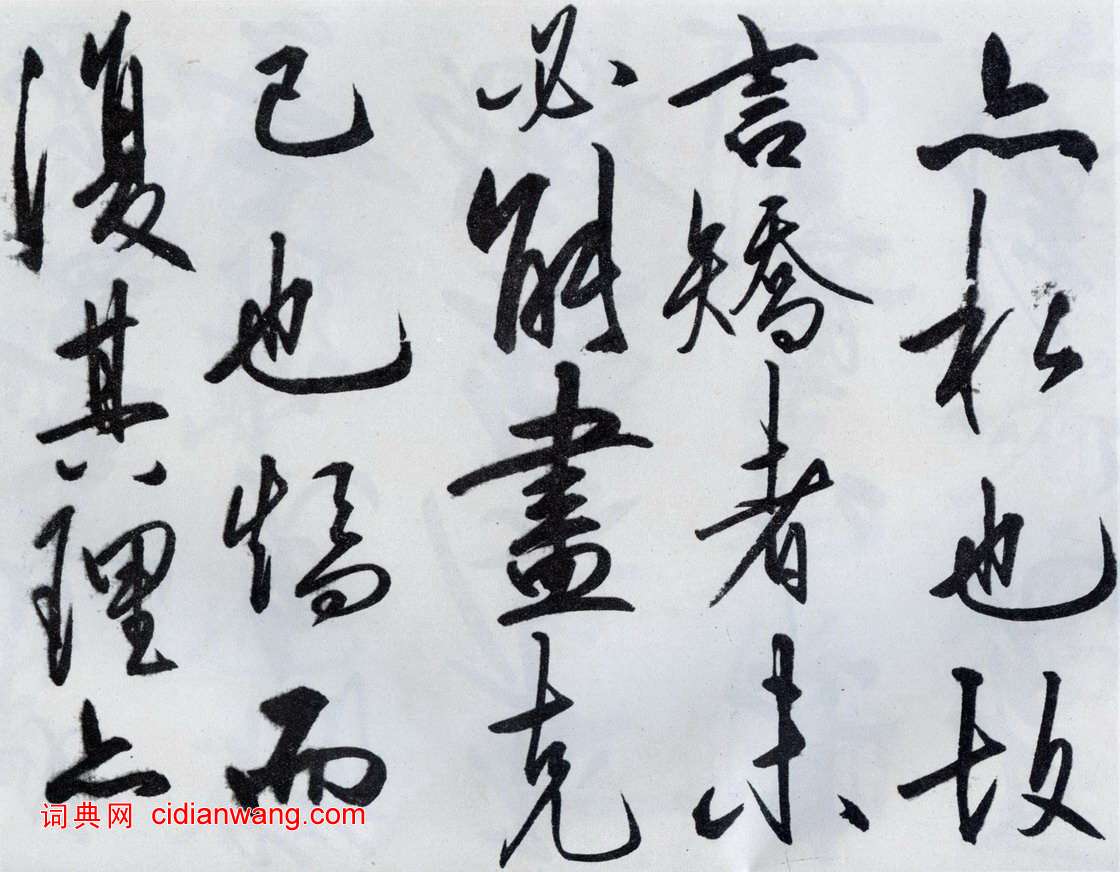 亦私也故
言矯者未
必能盡克
己也矯而
復其理亦
词典网 cidianwang.com